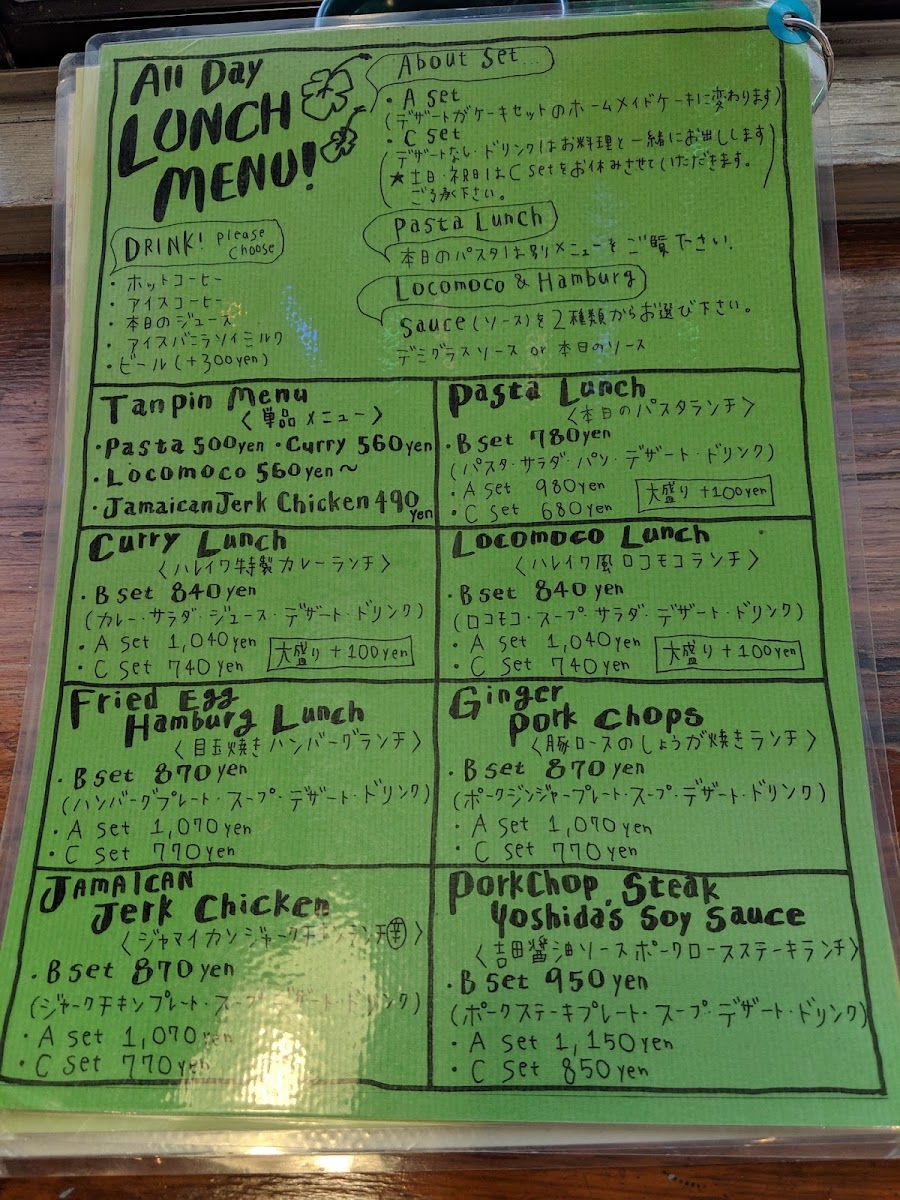 All Day
LUNCH
MENU!
About Set...
・A set
(デザートがケーキセットのホームメイドケーキに変わります)
・C set
(デザートなし・ドリンクはお料理と一緒にお出しします
★土日・祝日はC setをお休みさせていただきます。
ご了承下さい。)
Pasta Lunch
本日のパスタは別メニューをご覧下さい。
Locomoco & Hamburg
Sauce(ソース)を2種類からお選び下さい。
デミグラスソース or 本日のソース
DRINK! Please
Choose
・ホットコーヒー
・アイスコーヒー
・本日のジュース
・アイスバニラソイミルク
・ビール(+300yen)
Tanpin Menu
〈単品メニュー〉
・Pasta 500yen ・Curry 560yen
・Locomoco 560yen〜
・Jamaican Jerk Chicken 490
yen
Pasta Lunch
〈本日のパスタランチ〉
・B set 780yen
(パスタ・サラダ・パン・デザート・ドリンク)
・A set 980yen
大盛り +100yen
・C set 680yen
Curry Lunch
〈ハレイワ特製カレーランチ〉
・B set 840yen
(カレー・サラダ・ジュース・デザート・ドリンク)
・A set 1,040yen
大盛り +100yen
・C set 740yen
Locomoco Lunch
〈ハレイワ風ロコモコランチ〉
・B set 840yen
(ロコモコ・スープ・サラダ・デザート・ドリンク)
・A set 1,040yen
大盛り +100yen
・C set 740yen
Fried Egg
Hamburg Lunch
〈目玉焼きハンバーグランチ〉
・B set 870yen
(ハンバーグプレート・スープ・デザート・ドリンク)
・A set 1,070yen
・C set 770yen
Ginger
Pork Chops
〈豚ロースのしょうが焼きランチ〉
・B set 870yen
(ポークジンジャープレート・スープ・デザート・ドリンク)
・A set 1,070yen
・C set 770yen
JAMAICAN
Jerk Chicken
〈ジャマイカンジャークチキンランチ辛〉
・B set 870yen
(ジャークチキンプレート・スープ・デザート・ドリンク)
・A set 1,070yen
・C set 770yen
PorkChop Steak
Yoshida's Soy Sauce
〈吉田醤油ソースポークロースステーキランチ〉
・B set 950yen
(ポークステーキプレート・スープ・デザート・ドリンク)
・A set 1,150yen
・C set 850yen